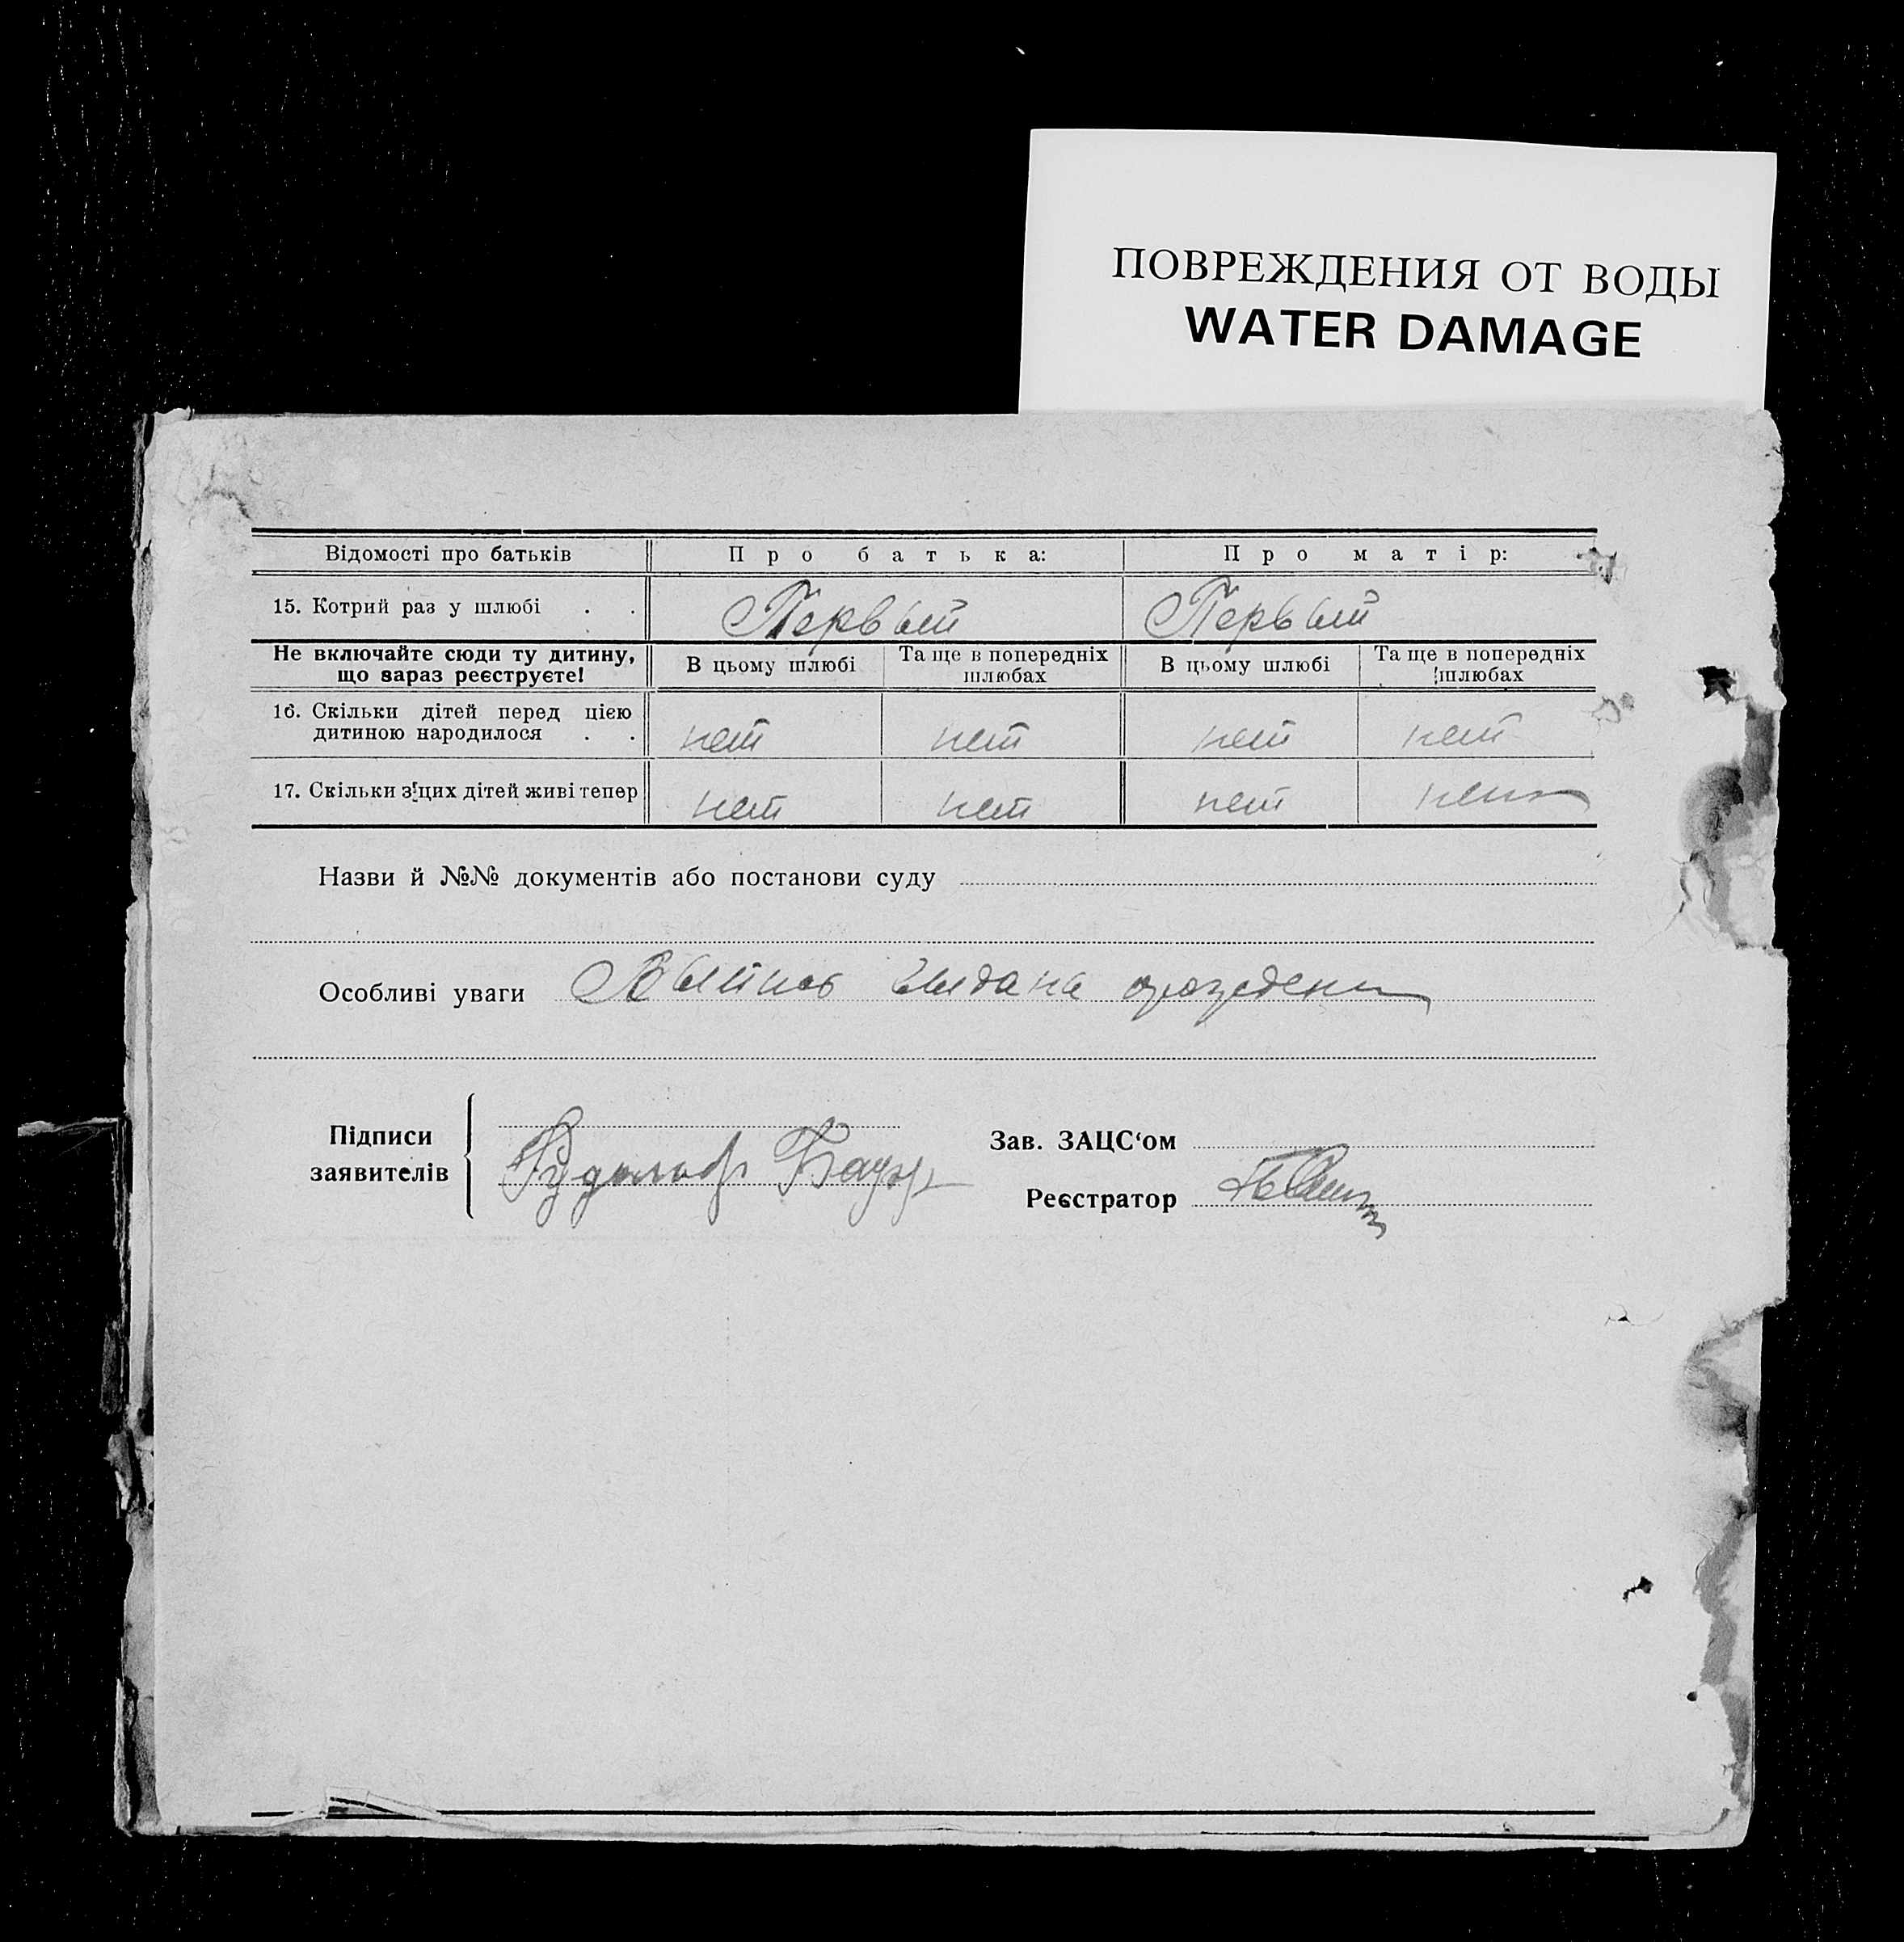 ПОВРЕЖДЕНИЯ ОТ ВОДЫ
WATER DAMAGE
Відомості про батьків Про батька: Про матір:
15. Котрий раз у шлюбі . . Первый Первый
Не включайте сюди ту дитину, що зараз реєструєте! В цьому шлюбі Та ще в попередніх шлюбах В цьому шлюбі Та ще в попередніх шлюбах
16. Скільки дітей перед цією
дитиною народилося . . нет нет нет нет
17. Скільки з цих дітей живі тепер нет нет нет нет
Назви й №№ документів або постанови суду
Особливі уваги дана
Підписи
заявителів
Рудольф Бауэр
Зав. ЗАЦС‘ом
Реєстратор